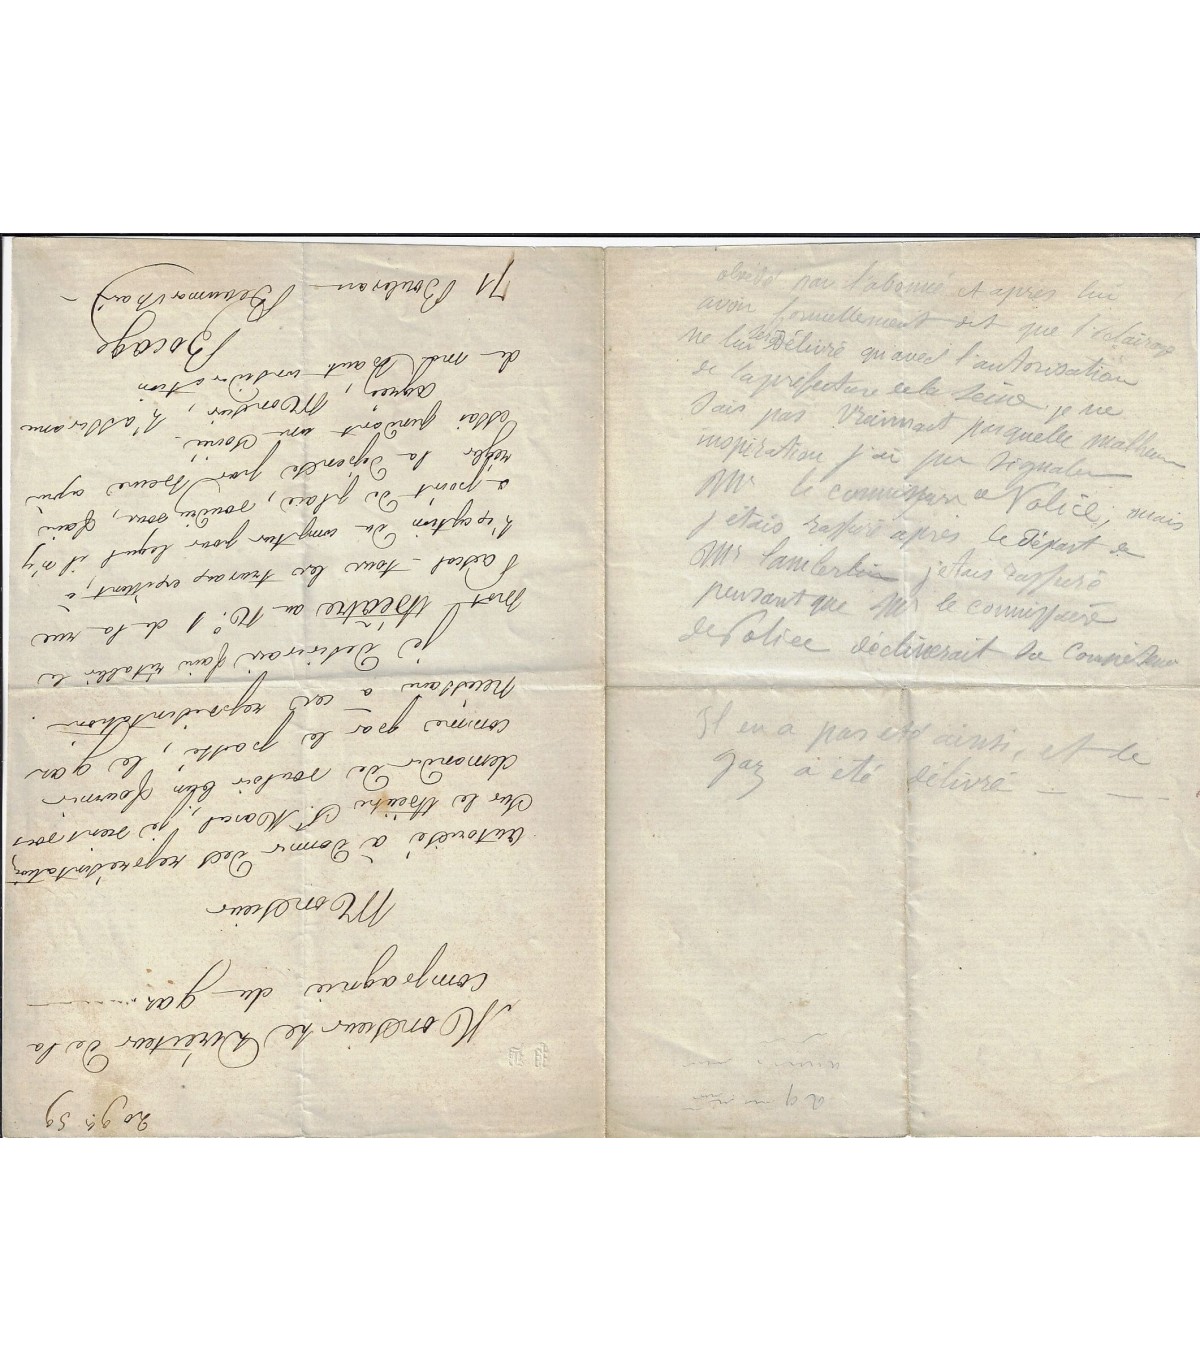 20 9bre 59
Monsieur Le Directeur De la
compagnie du gaz
Monsieur
autorisé à Donner Des représentations
sur le théâtre St Marcel, je viens vous
demander De vouloir bien fournir
comme par le passé, le gaz
nécessaire à ces représentations.
je Desirerais faire rétablir le
théâtre au No. 1 de la rue
Pascal tous les travaux existent, à
l'exception Du compteur pour lequel il n'y
a point De place, voudriez vous, faire
régler la Dépense par heure après
essai pendant une soirée.
agréez, Monsieur, l'assurance
de ma haute considération
Bocage
71 Boulevard
Beaumarchais
obsédé par l'abonné et après lui
avoir formellement dit que l'éclairage
ne lui serait Délivré qu'avec l'autorisation
de la préfecture de la Seine, je ne
sais pas vraiment par quelle malheureuse
inspiration j'ai pu signaler
Mr le commissaire de Police, mais
j'étais rassuré après le départ de
Mr Lambertin j'étais rassuré
pensant que Mr le commissaire
de Police déclinerait sa compétence
Il en a pas été ainsi, et le
gaz a été délivré